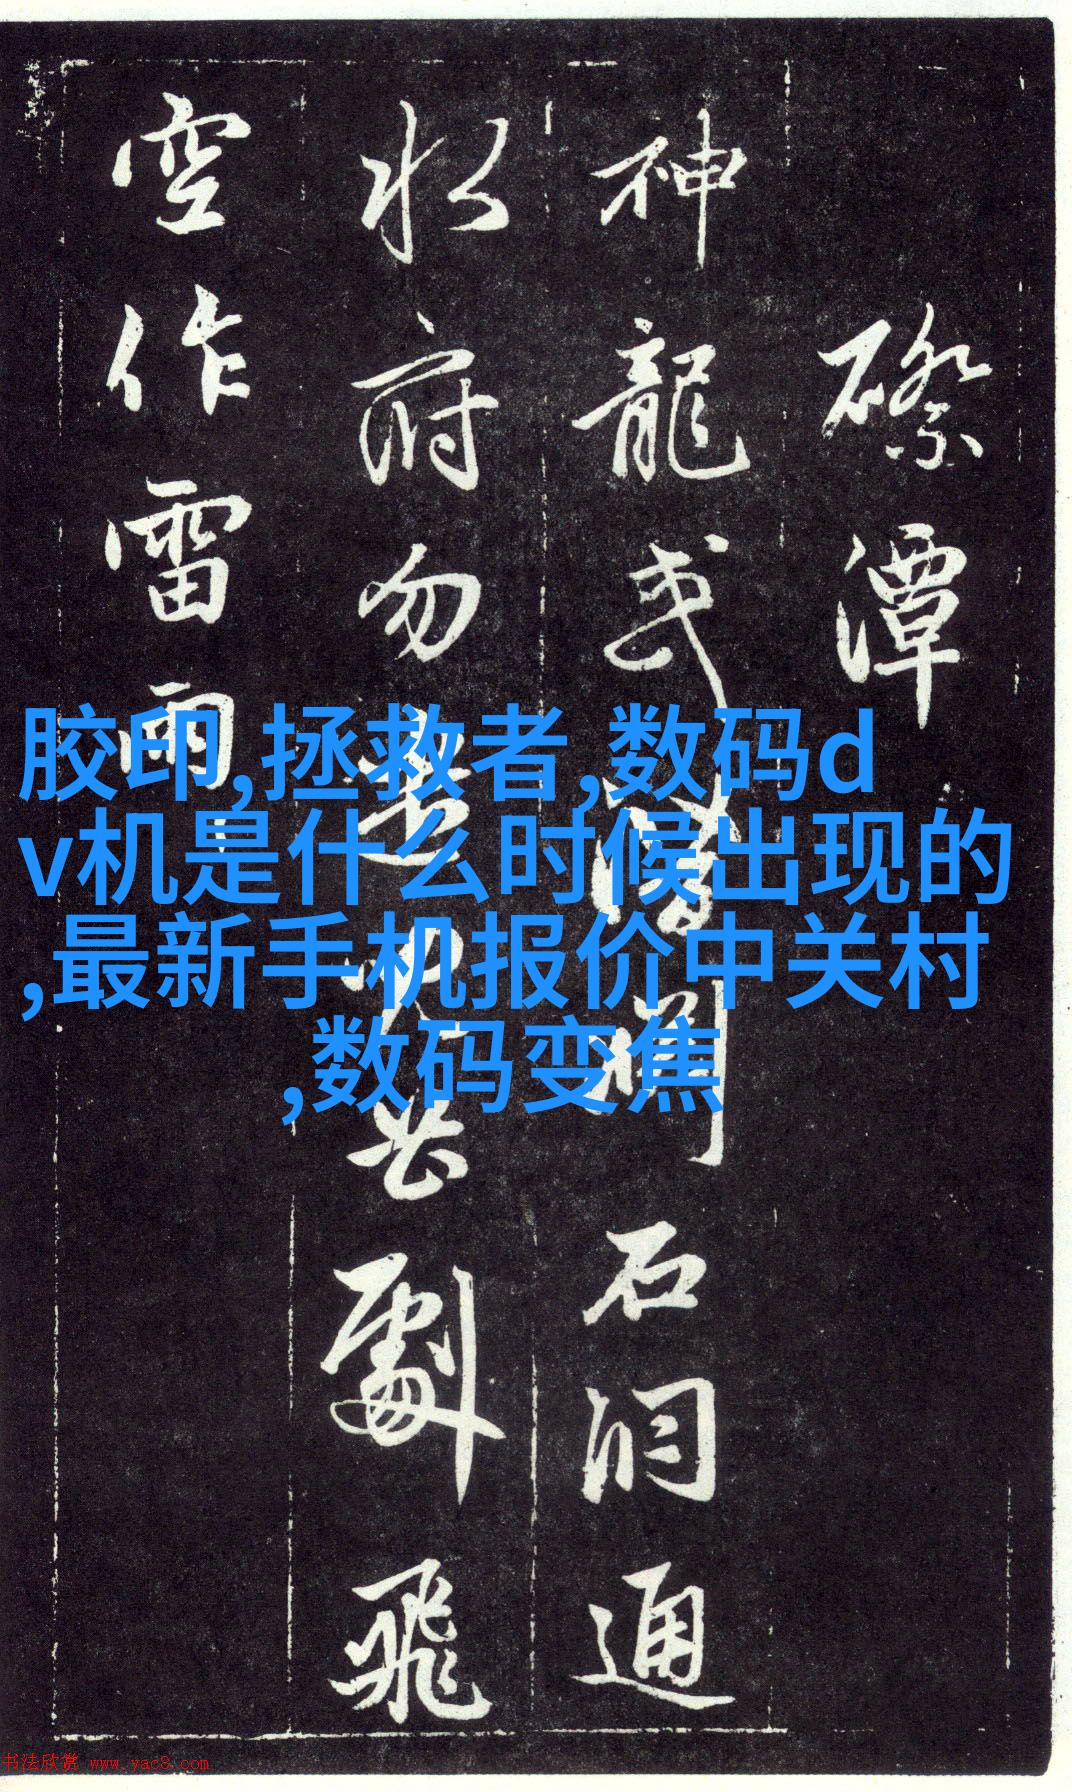 潭
神龍或潛石洞通
水府勿劇飛
空作雷雨
胶印,拯救者,数码d
v机是什么时候出现的
,最新手机报价中关村
,数码变焦
书法欣赏 www.yac8.com